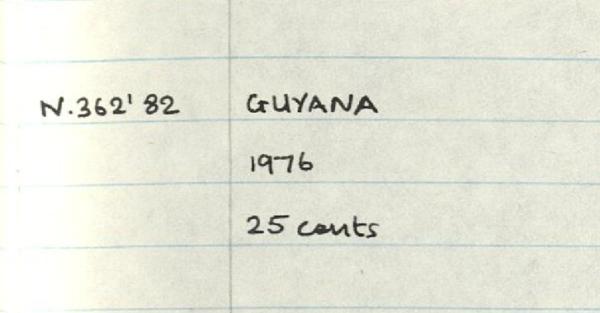 N.362'82 GUYANA
1976
25 cents